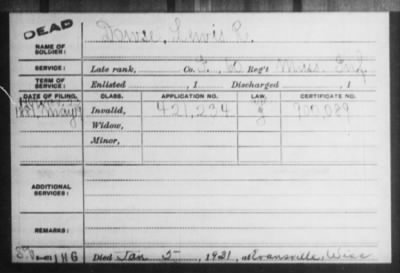 DEAD
NAME OF SOLDIER: Lewis
SERVICE: Late rank, Co. Reg't Inf.
TERM OF SERVICE: Enlisted , 1 Discharged , 1
DATE OF FILING. CLASS. APPLICATION NO. LAW. CERTIFICATE NO.
Invalid, 421,234
Widow,
Minor,
ADDITIONAL SERVICES:
REMARKS:
Died Jan 5, 1921, at Evansville, Wisc